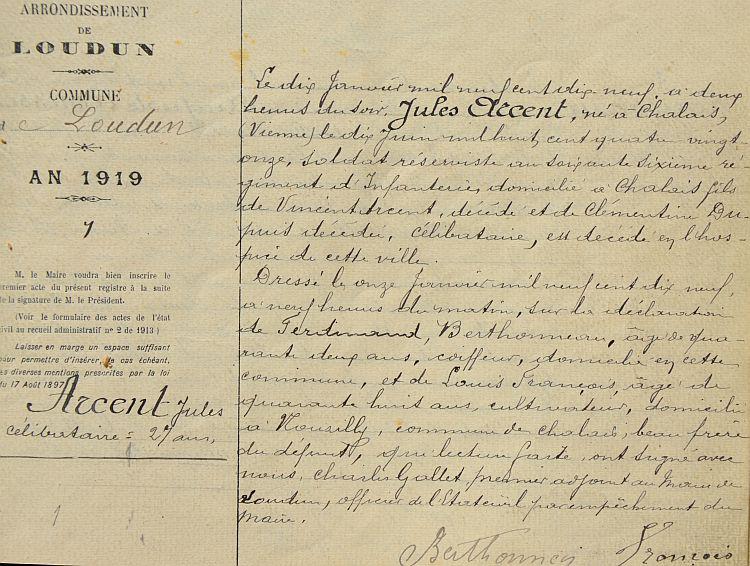 ARRONDISSEMENT
DE
LOUDUN
COMMUNE
Loudun
AN 1919
1
M. le Maire voudra bien inscrire le
premier acte du présent registre à la suite
de la signature de M. le Président.
(Voir le formulaire des actes de l'état
civil au recueil administratif nº 2 de 1913)
Laisser en marge un espace suffisant
pour permettre d'insérer, le cas échéant,
les diverses mentions prescrites par la loi
du 17 Août 1897
Arcent Jules
célibataire = 27 ans,
1
Le dix Janvier mil neuf cent dix neuf, à deux
heures du soir, Jules Arcent, né à Chalais,
(Vienne) le dix Juin mil huit cent quatre vingt-
onze, soldat réserviste au soixante sixième ré-
giment d'Infanterie, domicilié à Chalais fils
de Vincent Arcent, décédé et de Clémentine Du-
puis décédée, célibataire, est décédé en l'hos-
pice de cette ville.
Dressé le onze Janvier mil neuf cent dix neuf,
à neuf heures du matin, sur la déclaration
de Ferdinand, Berthonneau, âgé de qua-
rante deux ans, coiffeur, domicilié en cette
commune, et de Louis François âgé de
quarante huit ans, cultivateur, domicilié
à Nouzilly, commune de Chalais, beau frère
du défunt, qui lecture faite, ont signé avec
nous, Charles Gallet, premier adjoint au Maire de
Loudun, officier de l'Etat civil par empêchement du
Maire.
François